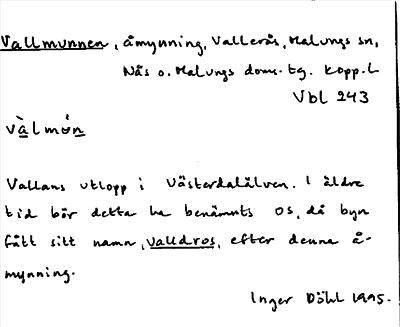 Vallmunnen, åmynning, Vallerås, Malungs sn,
Nås o. Malungs doms. tg. Kopp. L
Vbl 243
và̱lmóṉ
Vallans utlopp i Västerdalälven. I äldre
tid bör detta ha benämnts os, då byn
fått sitt namn, valldros, efter denna å-
mynning.
Inger Döhl 1995.